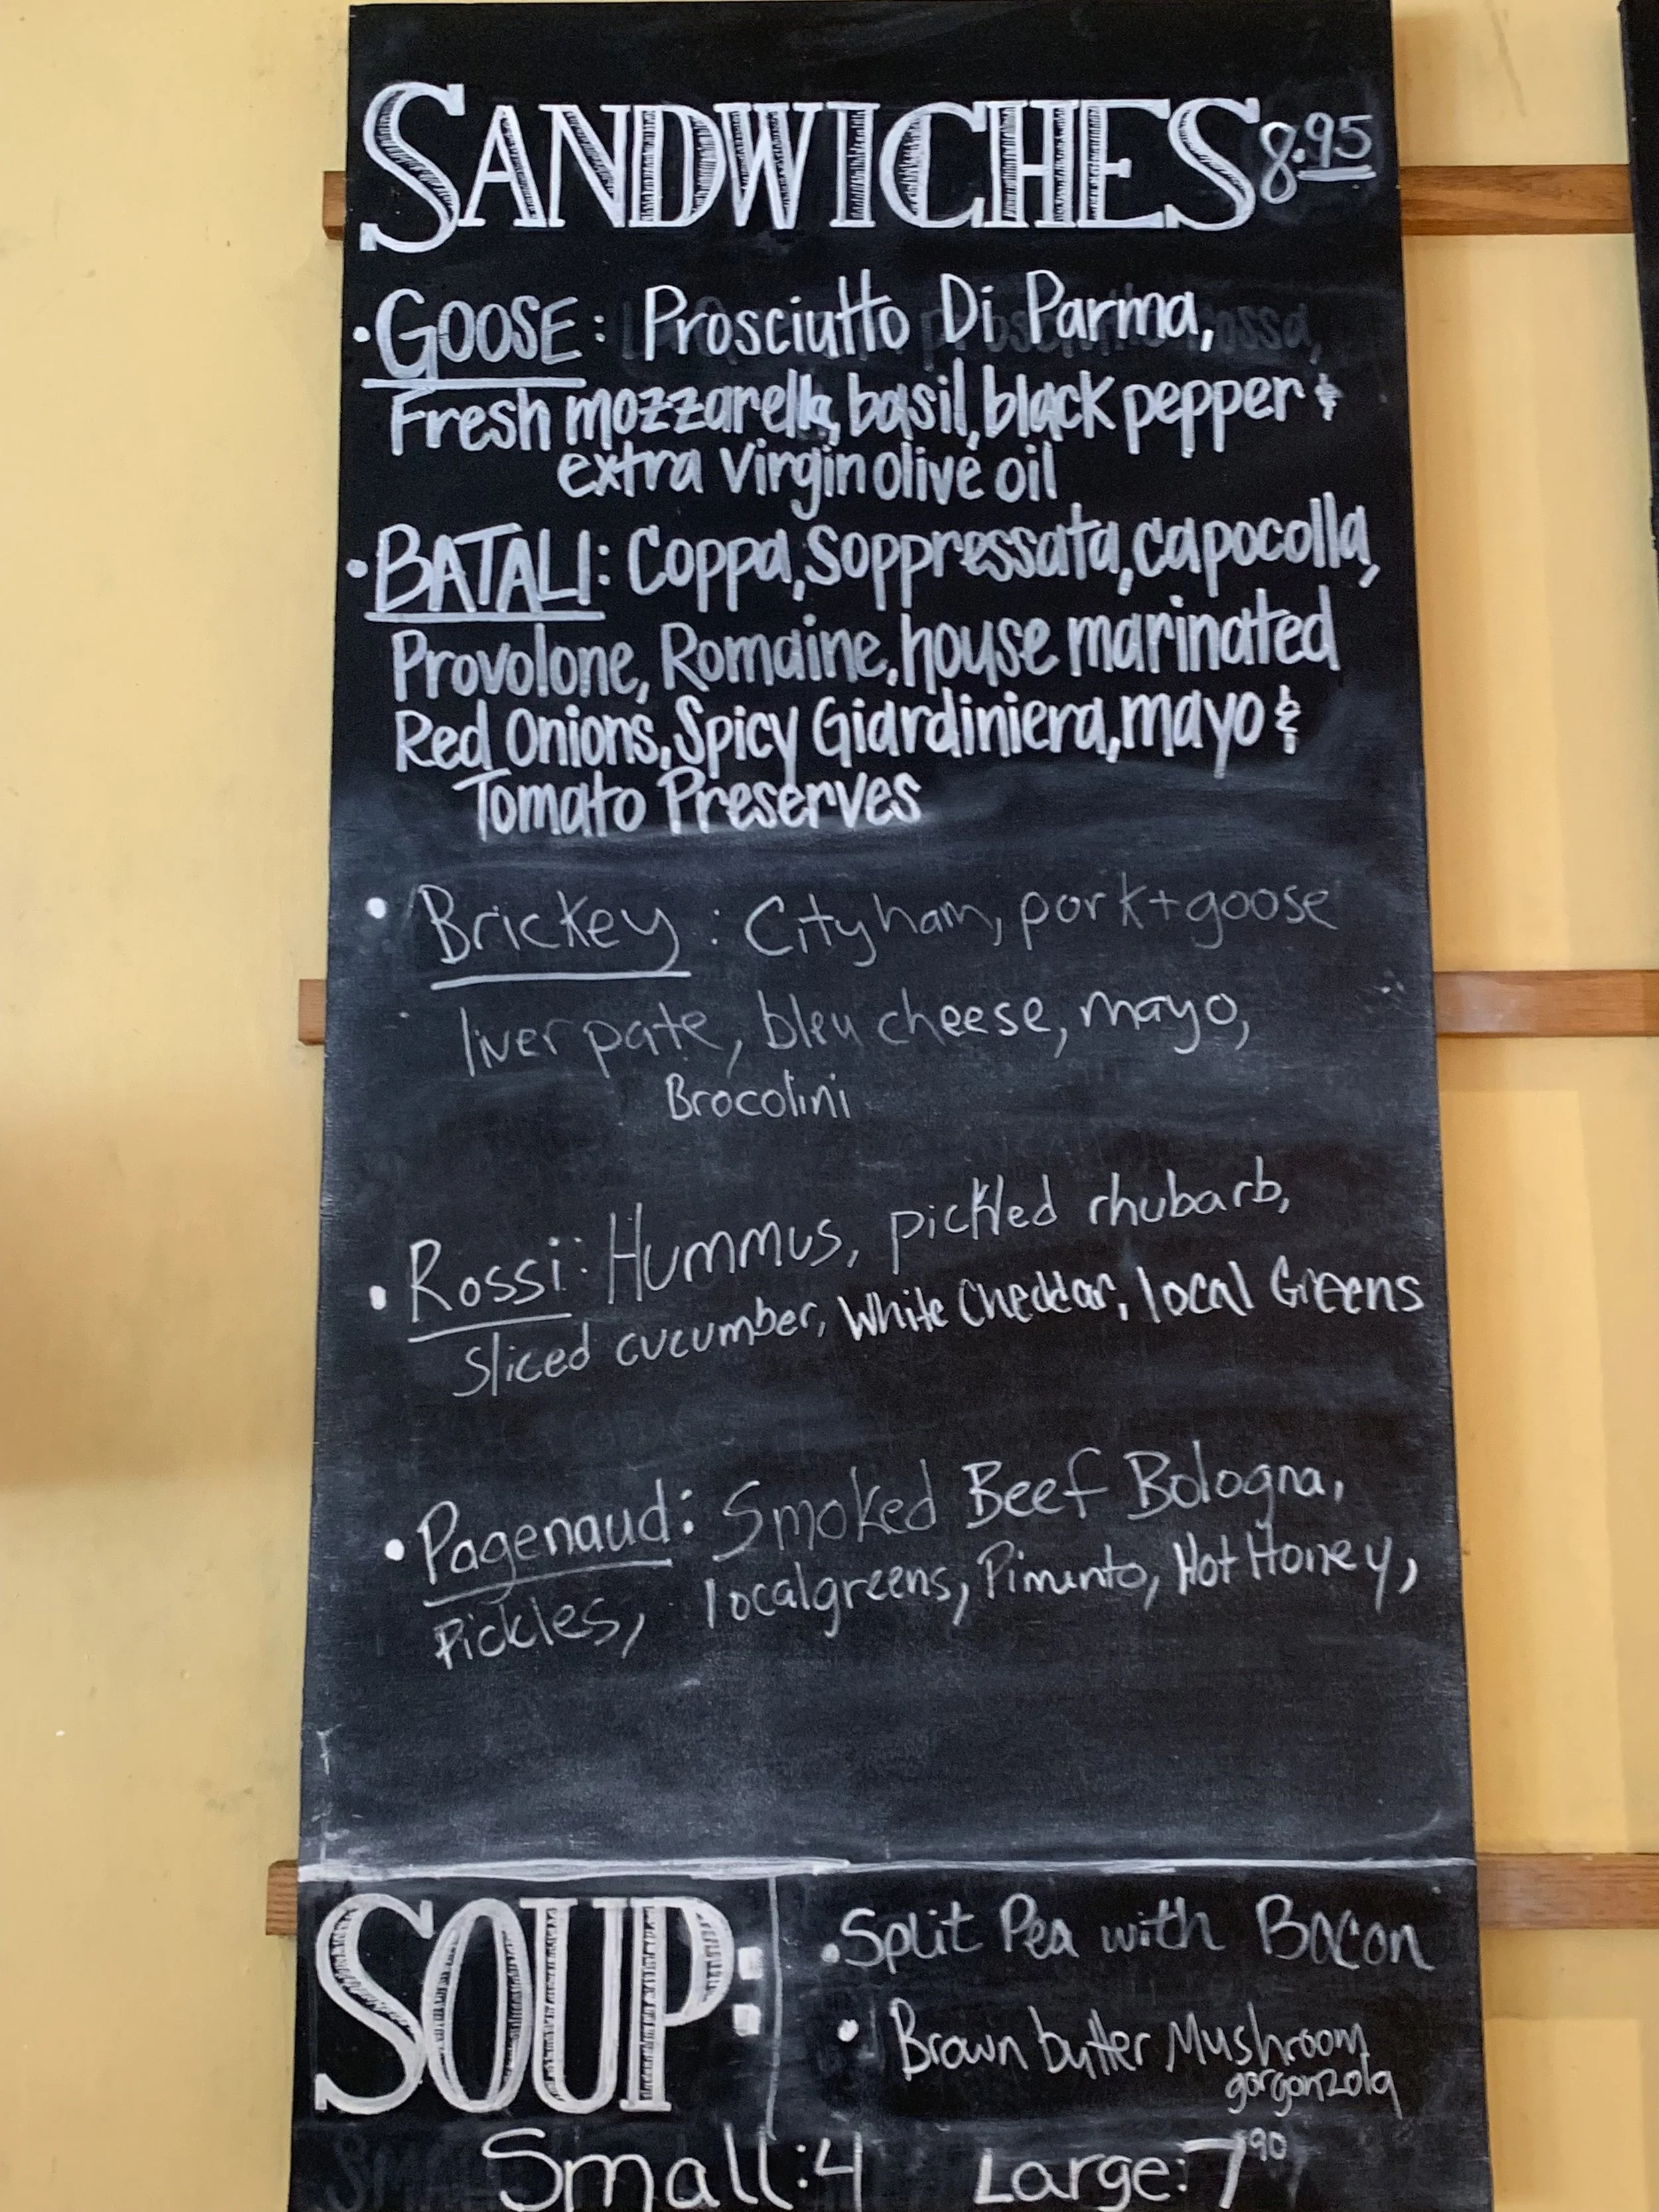 SANDWICHES 8.95
• GOOSE: Prosciutto Di Parma,
Fresh mozzarella, basil, black pepper &
extra Virgin olive oil
• BATALI: Coppa, Soppressata, capocolla,
Provolone, Romaine, house marinated
Red Onions, Spicy Giardiniera, mayo &
Tomato Preserves
• Brickey: City ham, pork + goose
liver pate, bleu cheese, mayo,
Brocolini
• Rossi: Hummus, pickled rhubarb,
Sliced cucumber, White Cheddar, local Greens
• Pagenaud: Smoked Beef Bologna,
Pickles, local greens, Pimento, Hot Honey,
SOUP:
• Split Pea with Bacon
• Brown butter Mushroom
gorgonzola
Small: 4 Large: 7 90